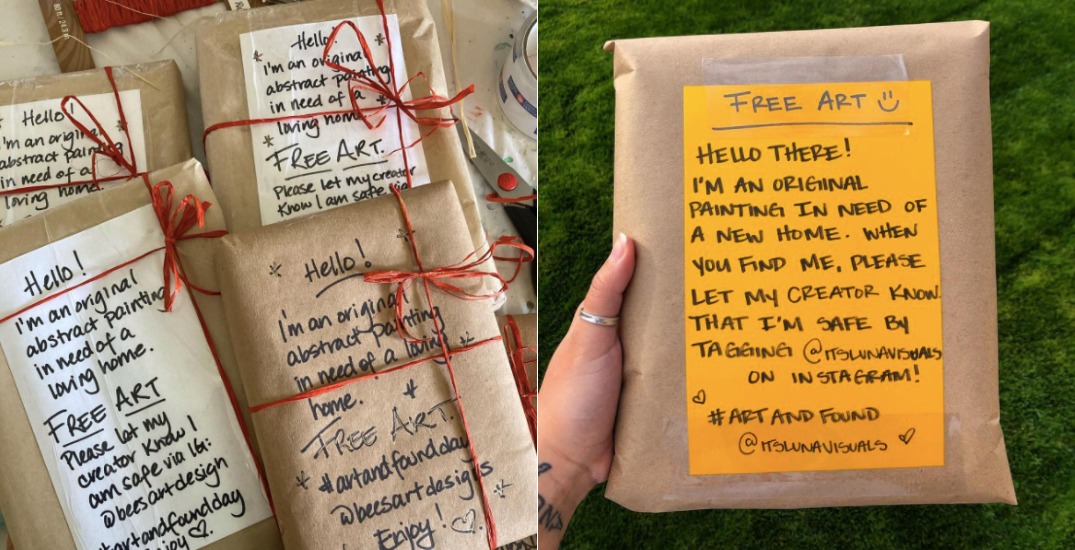 Hello!
i'm an original
abstract painting
in need of a
loving home.
FREE ART.
Please let my creator
Know I am safe via
Hello!
i'm an original
abstract painting
in need of a
loving home.
Hello!
i'm an original
abstract painting
in need of a
loving home.
FREE ART
Please let my
creator Know I
am safe via IG:
@beesartdesign
#artandfoundday
Enjoy
Hello!
i'm an original
abstract painting
in need of a loving
home.
FREE ART.
#artandfoundday
@beesartdesigns
Enjoy!
FREE ART
HELLO THERE!
I'M AN ORIGINAL
PAINTING IN NEED OF
A NEW HOME. WHEN
YOU FIND ME, PLEASE
LET MY CREATOR KNOW
THAT I'M SAFE BY
TAGGING @ITSLUNAVISUALS
ON INSTAGRAM!
#ARTANDFOUND
@ITSLUNAVISUALS